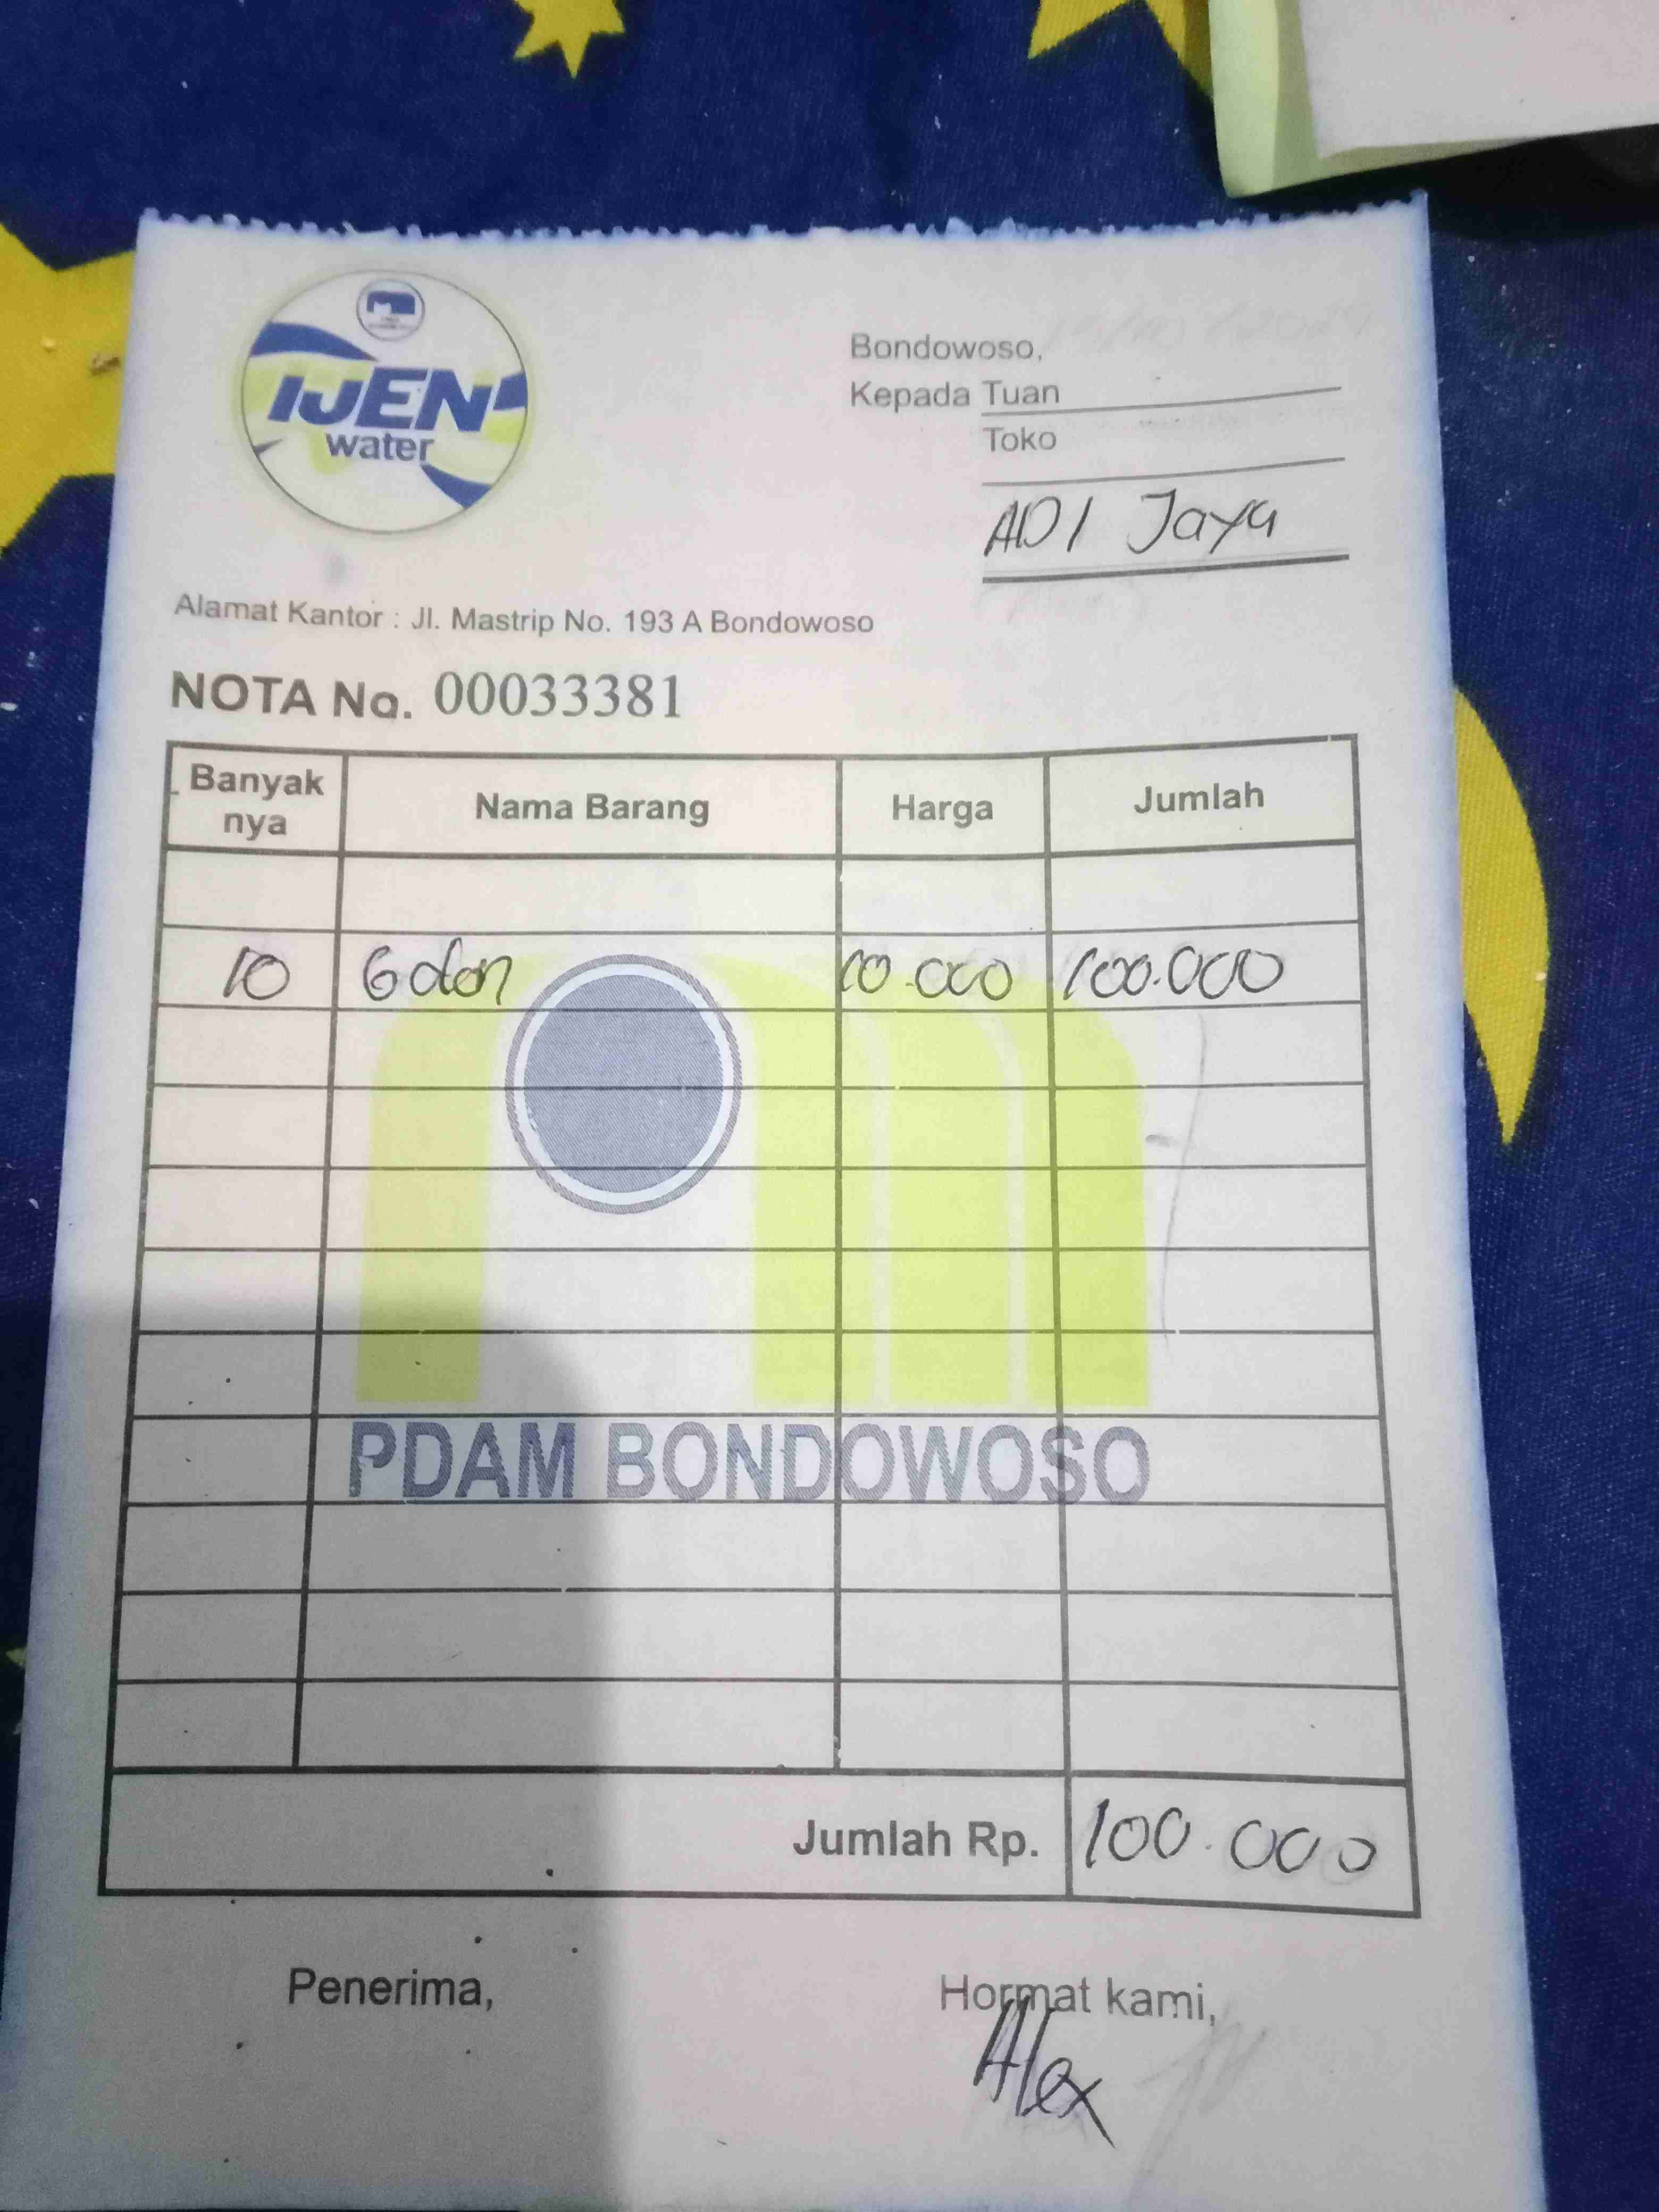 IJEN
water
Bondowoso,
Kepada Tuan
Toko
ADI Jaya
Alamat Kantor : Jl. Mastrip No. 193 A Bondowoso
NOTA No. 00033381
Banyak nya Nama Barang Harga Jumlah
10 Galon 10.000 100.000
PDAM BONDOWOSO
Jumlah Rp. 100.000
Penerima, Hormat kami,
Alex